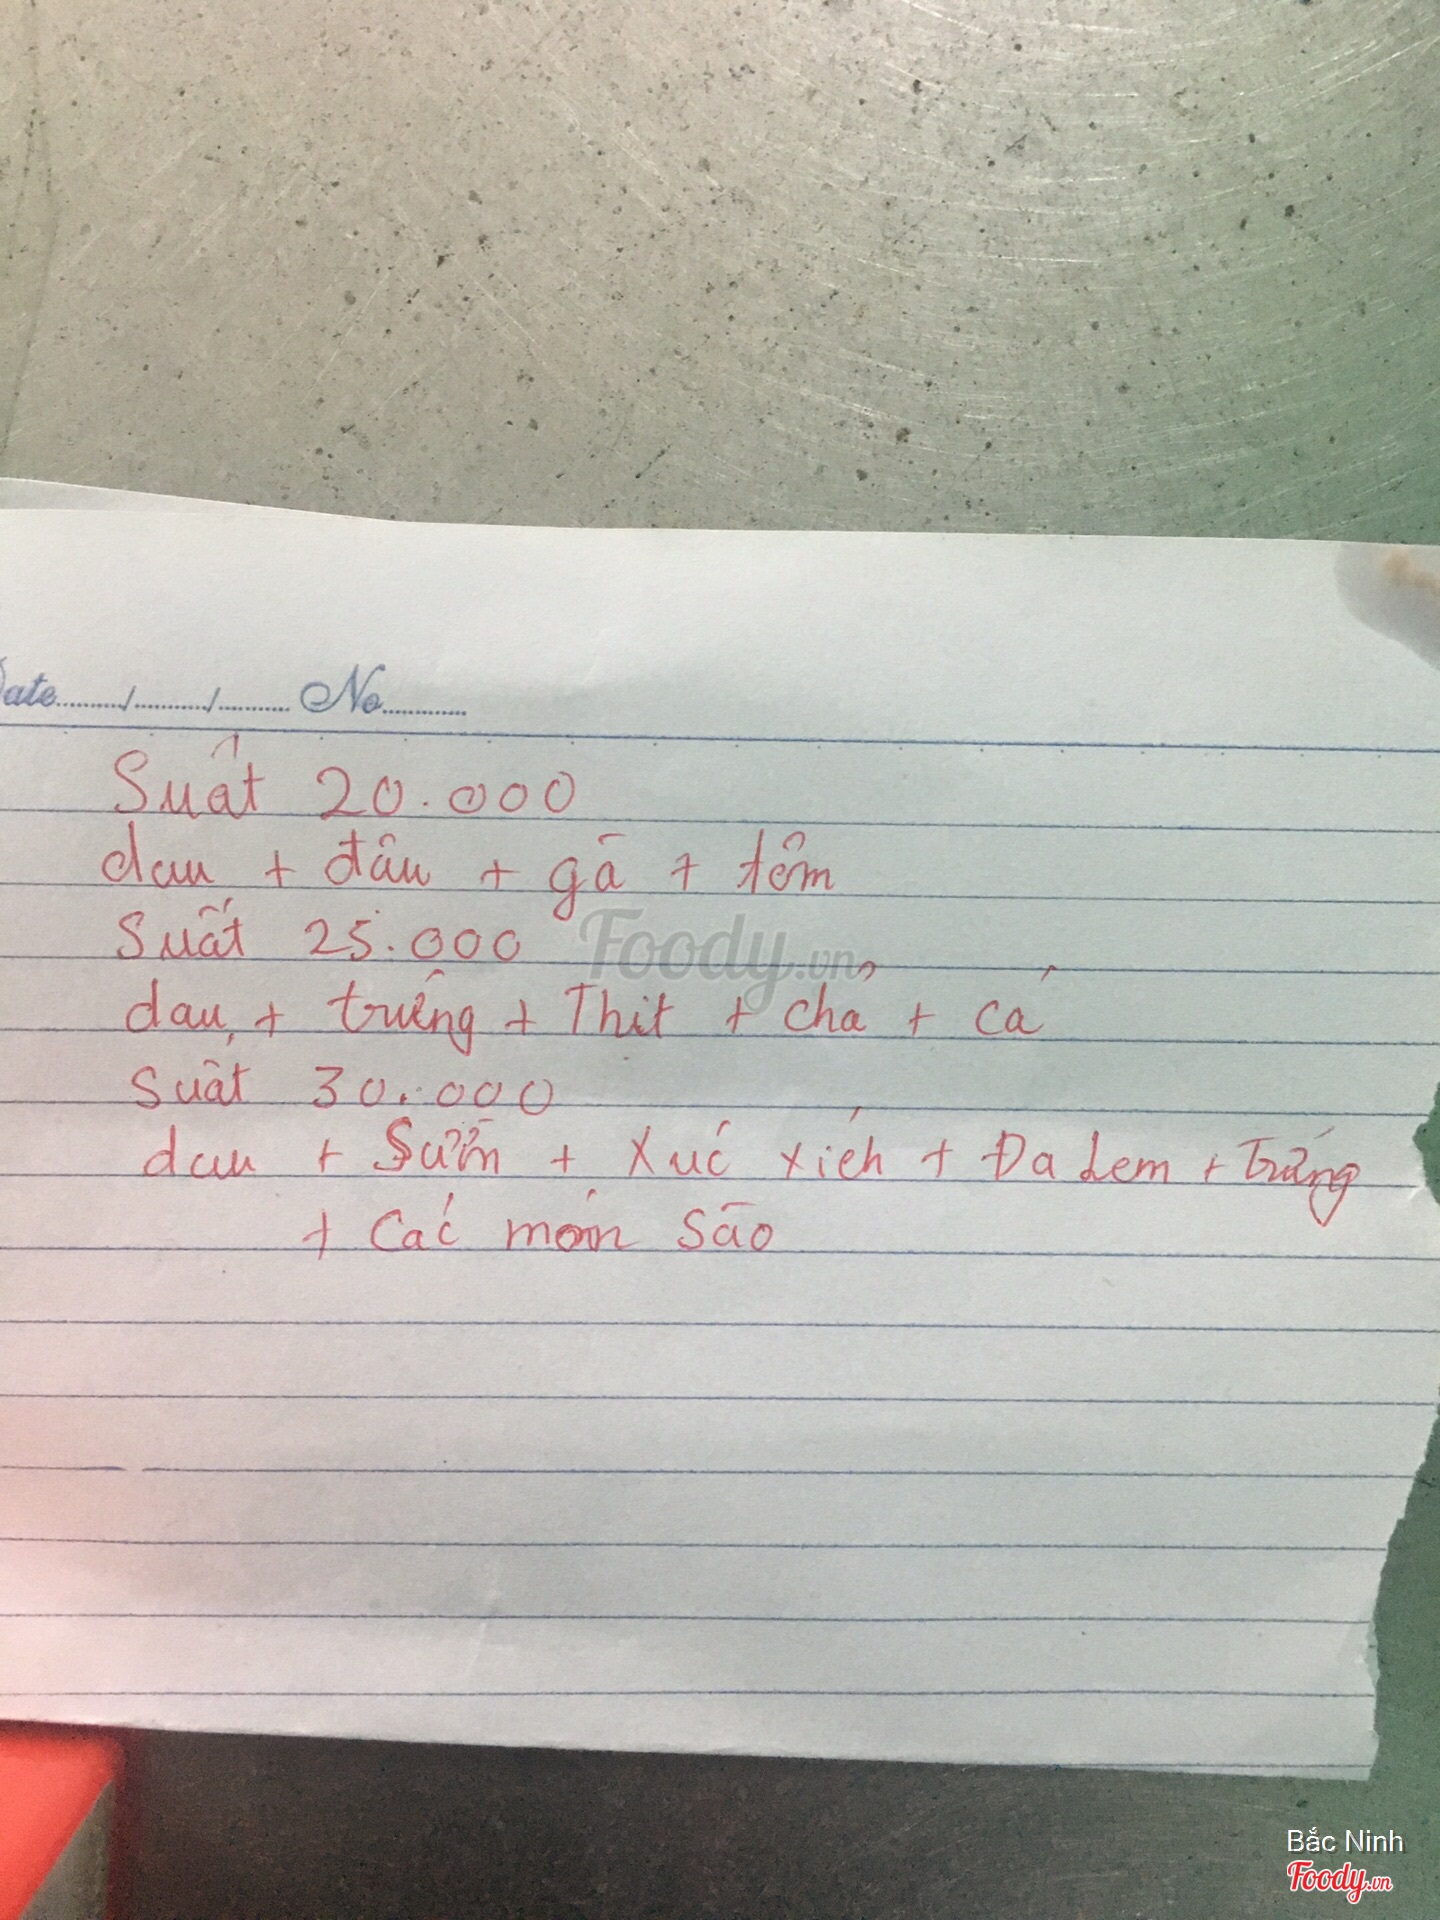 Date......../........./......... No..........
Suất 20.000
dau + đâu + gà + tôm
Foody.vn
Suất 25.000
dau + trứng + Thit + chả + cá
Suất 30.000
dau + Sườn + Xúc xích + Đa dem + trứng
+ Các món Sào
Bắc Ninh
Foody.vn